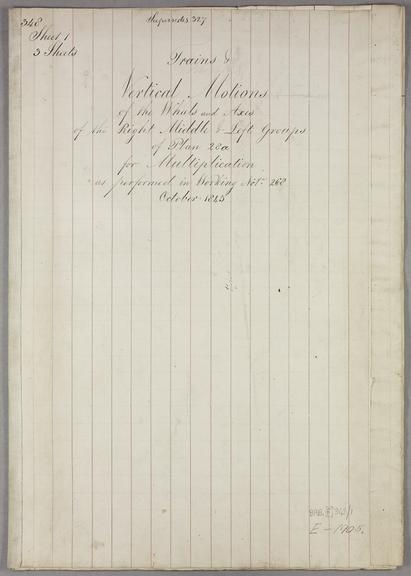 348
Sheet 1
3 Sheets
Supersedes 327
Trains &
Vertical Motions
of the Wheels and Axes
of the Right Middle & Left Groups
of Plan 28a
for Multiplication
as performed in Working Notn. 268
October 1845
BAB. [F] 348/1